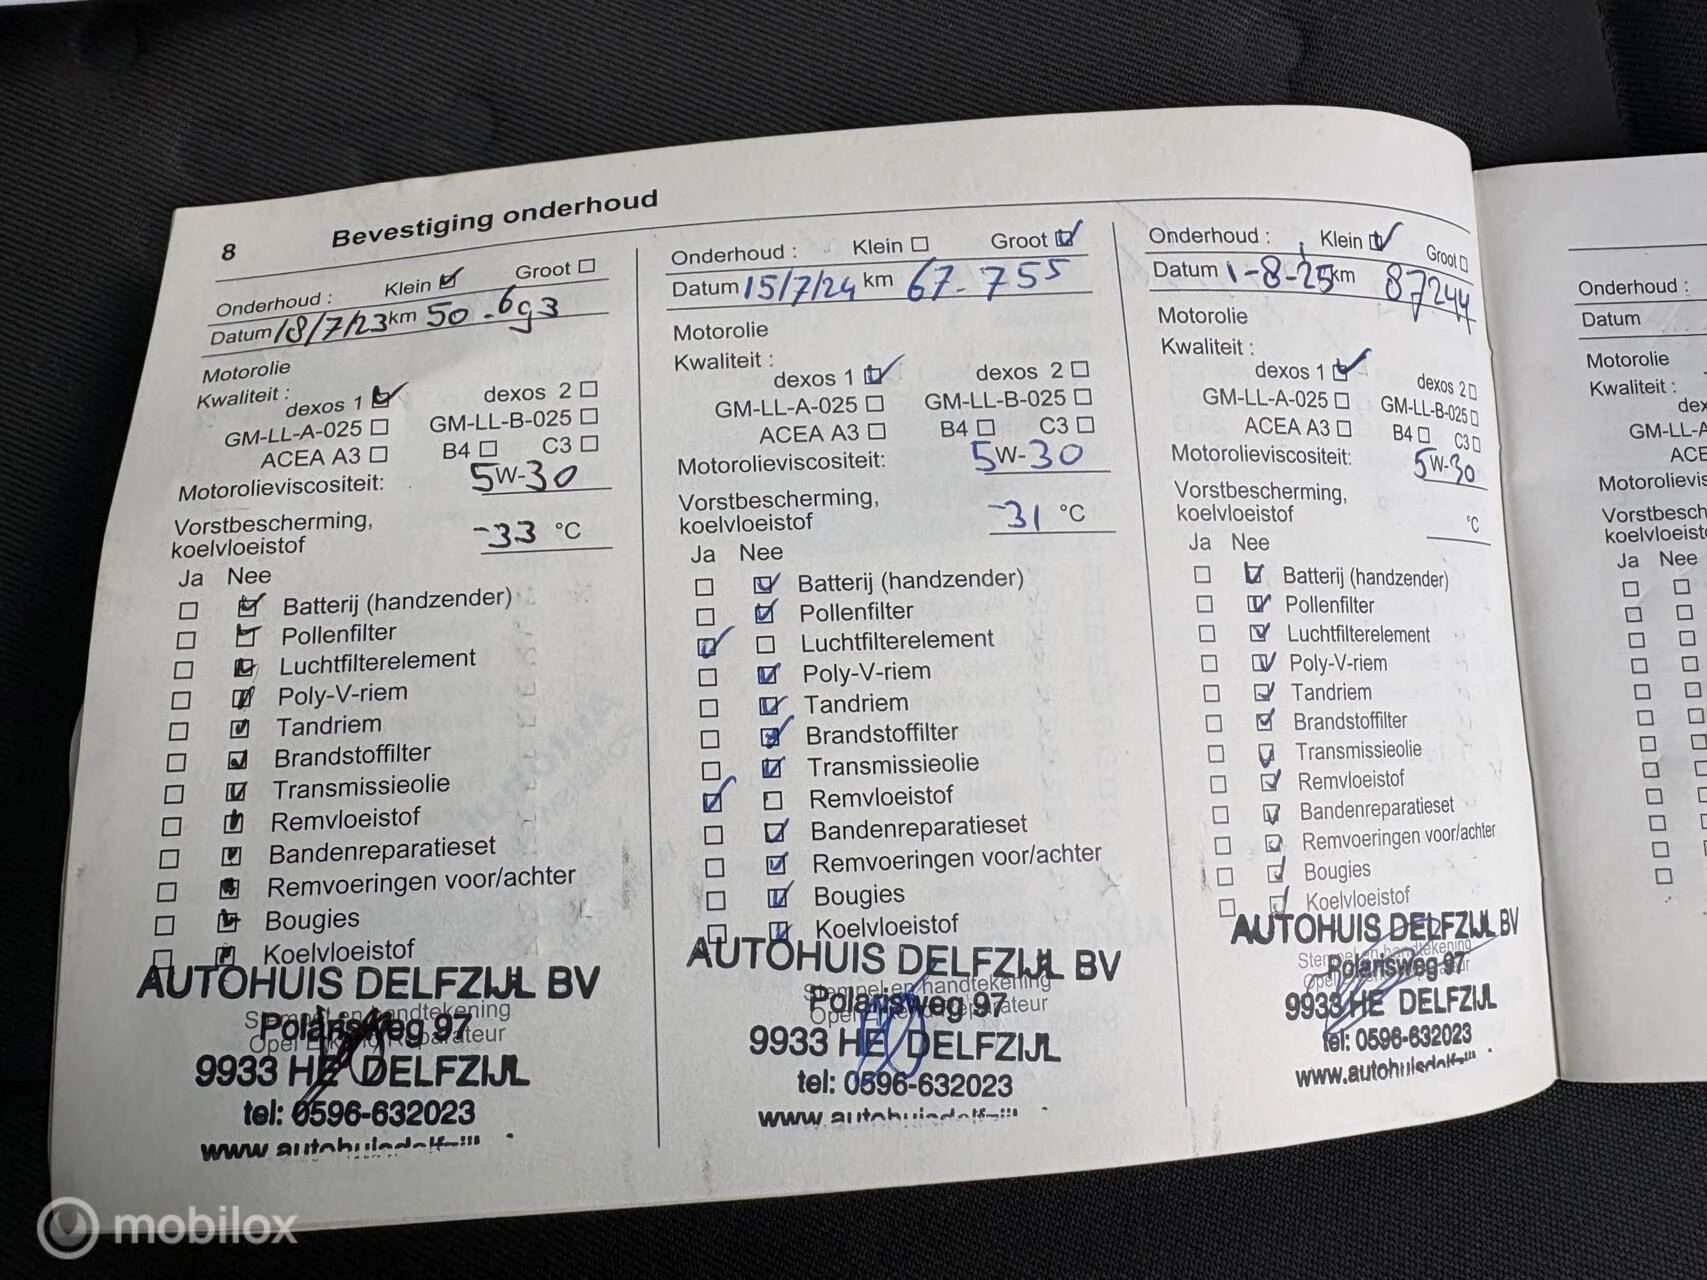 8 Bevestiging onderhoud
Onderhoud : Klein Groot
Datum 18/7/23 km 50.693
Motorolie
Kwaliteit :
dexos 1 dexos 2
GM-LL-A-025 GM-LL-B-025
ACEA A3 B4 C3
Motorolieviscositeit: 5W-30
Vorstbescherming,
koelvloeistof -33 °C
Ja Nee
Batterij (handzender)
Pollenfilter
Luchtfilterelement
Poly-V-riem
Tandriem
Brandstoffilter
Transmissieolie
Remvloeistof
Bandenreparatieset
Remvoeringen voor/achter
Bougies
Koelvloeistof
AUTOHUIS DELFZIJL BV
Stempel en handtekening
Polarisweg 97
Opel Erkend Reparateur
9933 HE DELFZIJL
tel: 0596-632023
Onderhoud : Klein Groot
Datum 15/7/24 km 67.755
Motorolie
Kwaliteit :
dexos 1 dexos 2
GM-LL-A-025 GM-LL-B-025
ACEA A3 B4 C3
Motorolieviscositeit: 5W-30
Vorstbescherming,
koelvloeistof -31 °C
Ja Nee
Batterij (handzender)
Pollenfilter
Luchtfilterelement
Poly-V-riem
Tandriem
Brandstoffilter
Transmissieolie
Remvloeistof
Bandenreparatieset
Remvoeringen voor/achter
Bougies
Koelvloeistof
AUTOHUIS DELFZIJL BV
Stempel en handtekening
Polarisweg 97
Opel Erkend Reparateur
9933 HE DELFZIJL
tel: 0596-632023
Onderhoud : Klein Groot
Datum 1-8-25 km 87244
Motorolie
Kwaliteit :
dexos 1 dexos 2
GM-LL-A-025 GM-LL-B-025
ACEA A3 B4 C3
Motorolieviscositeit: 5W-30
Vorstbescherming,
koelvloeistof °C
Ja Nee
Batterij (handzender)
Pollenfilter
Luchtfilterelement
Poly-V-riem
Tandriem
Brandstoffilter
Transmissieolie
Remvloeistof
Bandenreparatieset
Remvoeringen voor/achter
Bougies
Koelvloeistof
AUTOHUIS DELFZIJL BV
Stempel en handtekening
Polarisweg 97
9933 HE DELFZIJL
tel: 0596-632023
Onderhoud :
Datum
Motorolie
Kwaliteit :
dex
GM-LL-A
ACE
Motorolievis
Vorstbesch
koelvloeist
Ja Nee
mobilox